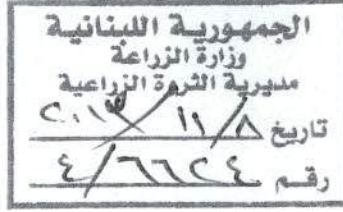 الجمهورية اللبنانية
وزارة الزراعة
مديرية الثروة الزراعية
تاريخ ٨/١١/٢٠١٣
رقم ٤/٦٦٢٤